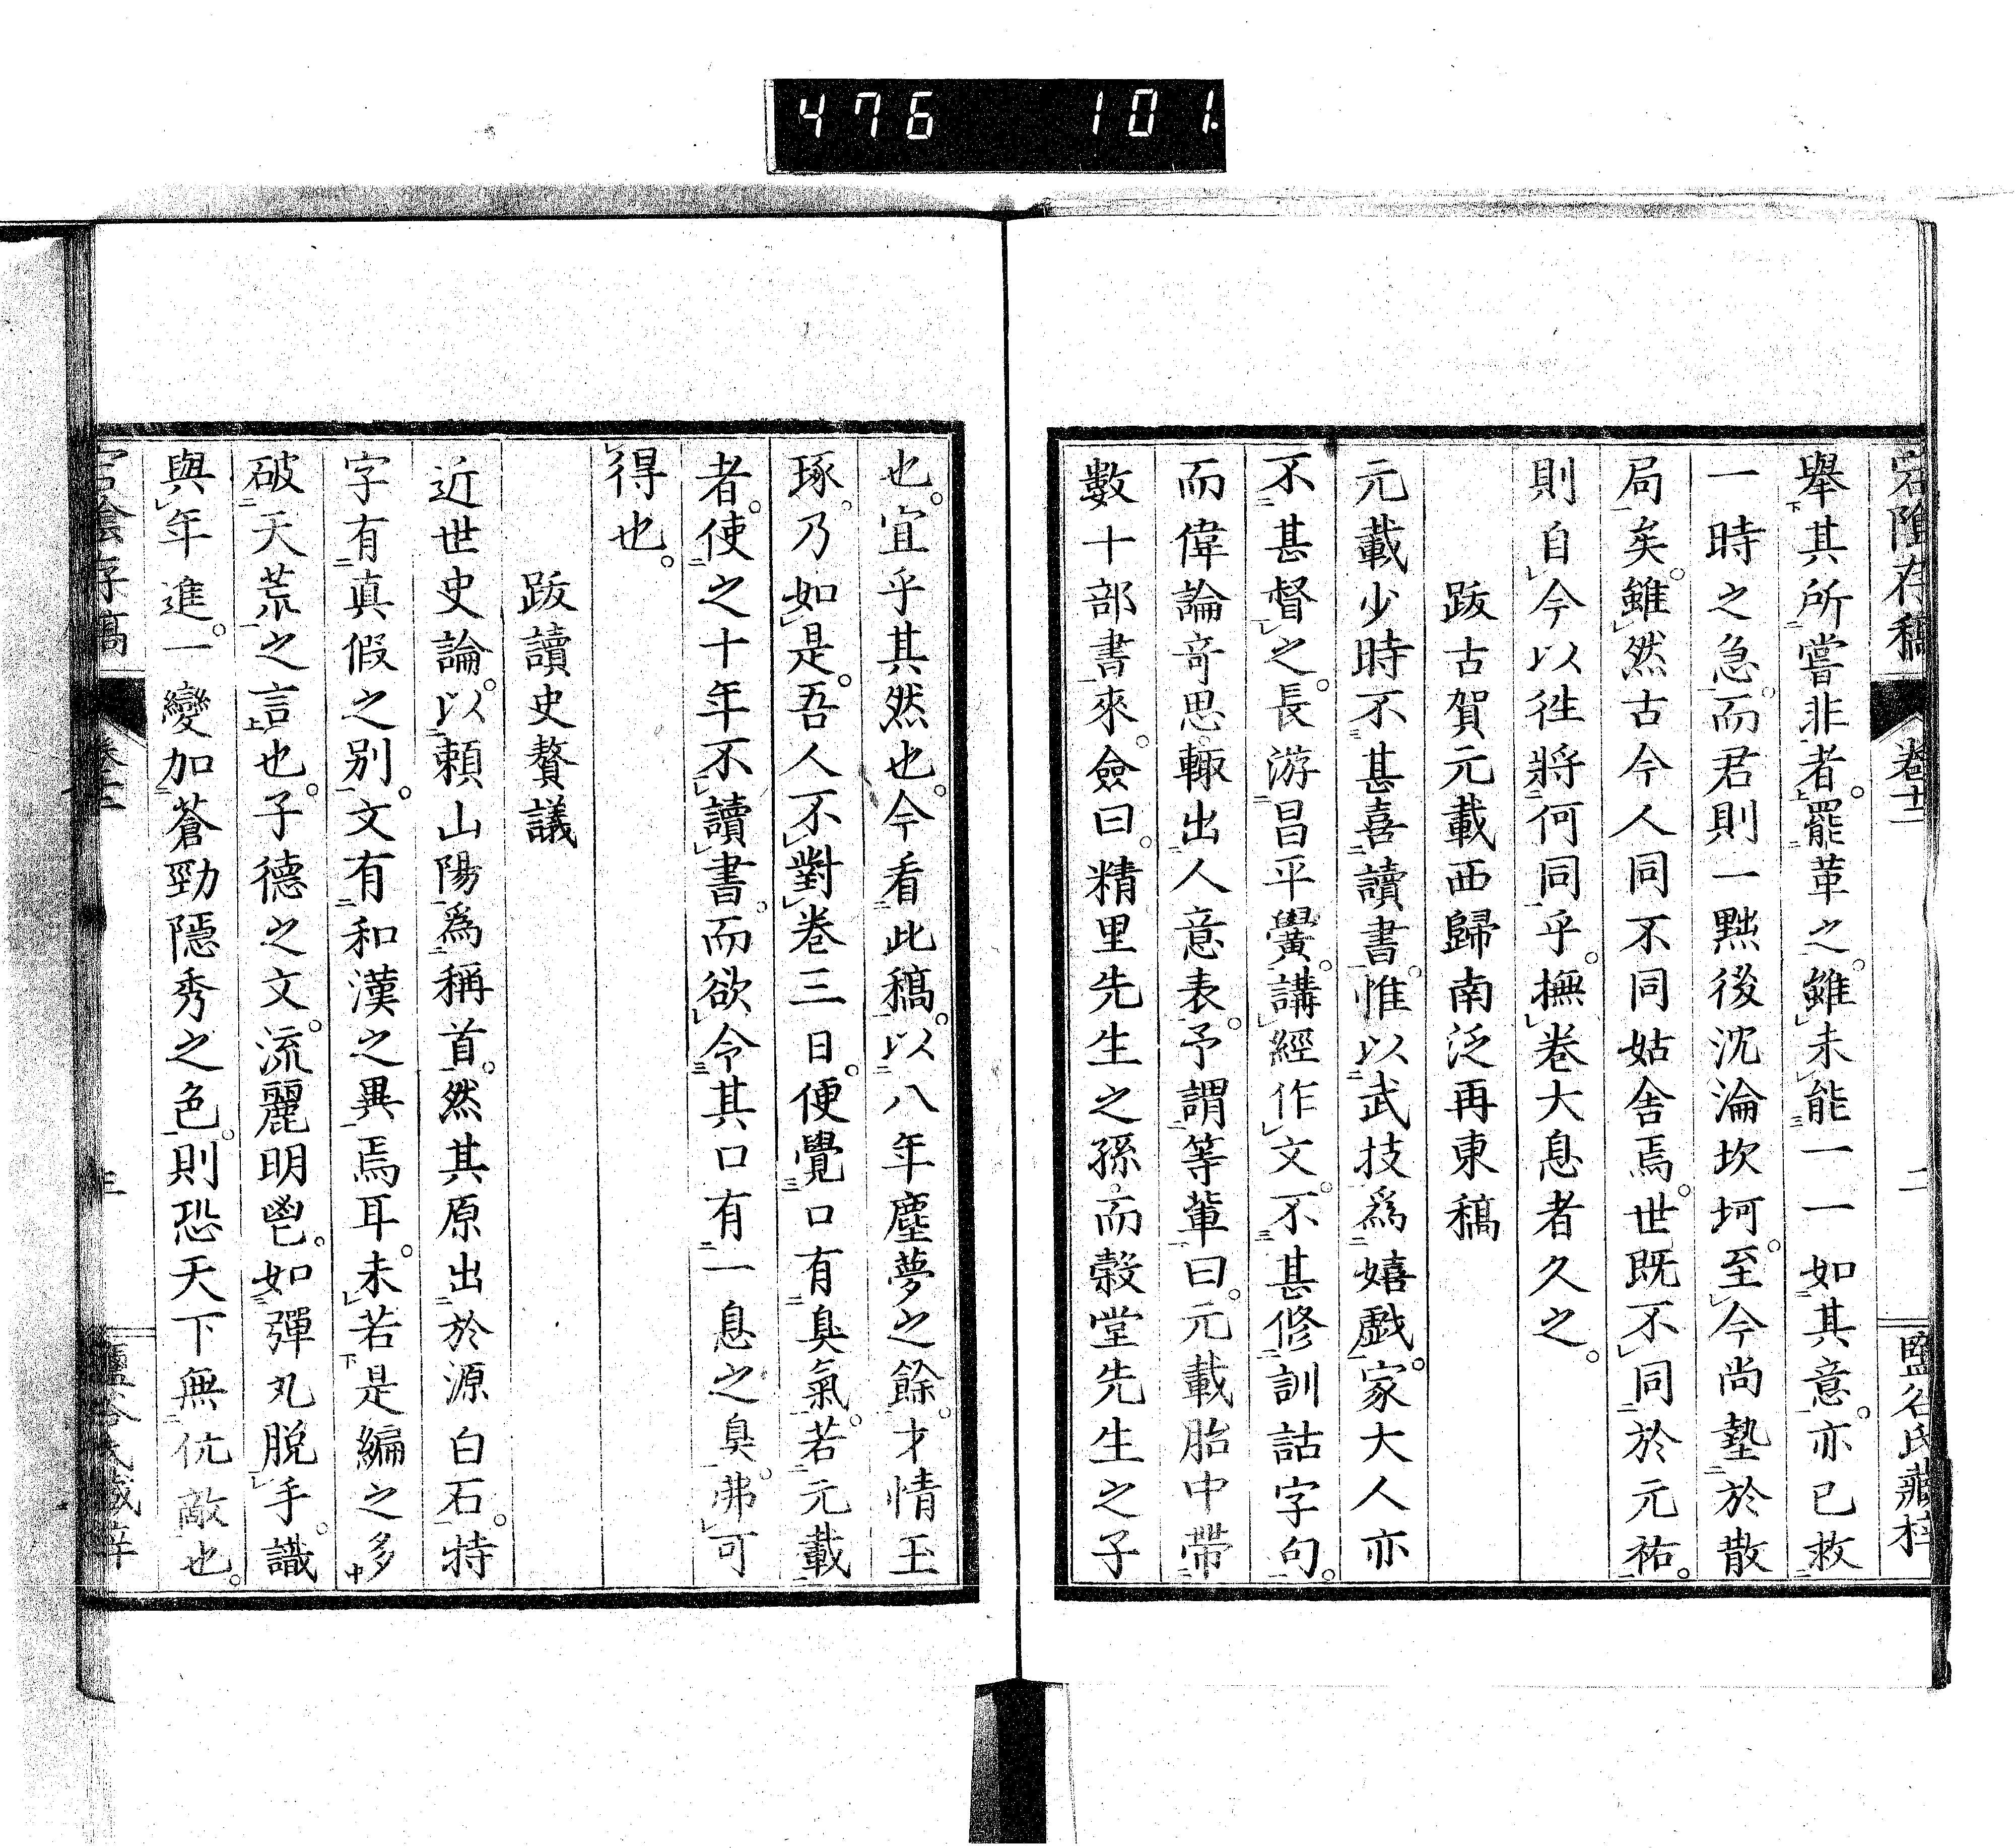 476 101
宕陰存稿 卷十二 二 鹽谷氏藏梓
舉其所嘗非者。罷革之。雖未能一一如其意。亦已救
一時之急。而君則一黜後沈淪坎坷。至今尚墊於散
局矣。雖然古今人同不同姑舍焉。世既不同於元祐。
則自今以徃將何同乎。撫卷大息者久之。
跋古賀元載西歸南泛再東稿
元載少時不甚喜讀書。惟以武技爲嬉戯。家大人亦
不甚督之。長游昌平黌。講經作文。不甚修訓詁字句。
而偉論奇思輙出人意表。予謂等輩曰。元載胎中帶
數十部書來。僉曰。精里先生之孫。而榖堂先生之子
也。宜乎其然也。今看此稿。以八年塵夢之餘。才情玉
琢。乃如是。吾人不對卷三日。便覺口有臭氣。若元載
者。使之十年不讀書。而欲令其口有一息之臭。弗可
得也。
跋讀史贅議
近世史論。以頼山陽爲稱首。然其原出於源白石。特
字有真假之别。文有和漢之異焉耳。未若是編之多
破天荒之言也。子德之文。流麗明鬯。如彈丸脱手。識
與年進。一變加蒼勁隱秀之色。則恐天下無伉敵也。
宕陰存稿 卷十二 三 鹽谷氏藏梓